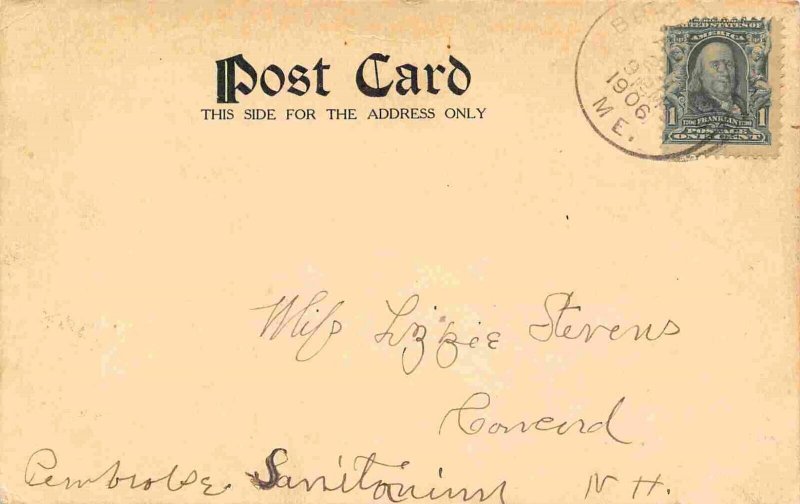 Post Card
THIS SIDE FOR THE ADDRESS ONLY
1906
ME.
UNITED STATES OF
AMERICA
FRANKLIN
1 POSTAGE 1
ONE CENT
Miss Lizzie Stevens
Concord
Pembroke Sanitorium N H.